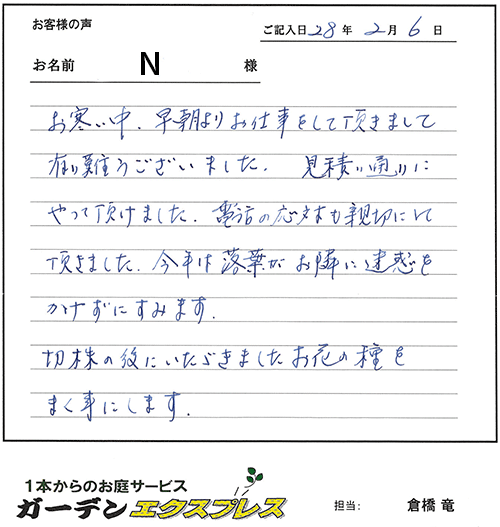 お客様の声
ご記入日 28年 2月 6日
お名前 N 様
お寒い中、早朝よりお仕事をして頂きまして
有難うございました。 見積り通りに
やって頂けました。電話の応対も親切にして
頂きました。今年は落葉がお隣に迷惑を
かけずにすみます。
切株の後にいただきましたお花の種を
まく事にします。
1本からのお庭サービス
ガーデンエクスプレス
担当: 倉橋 竜